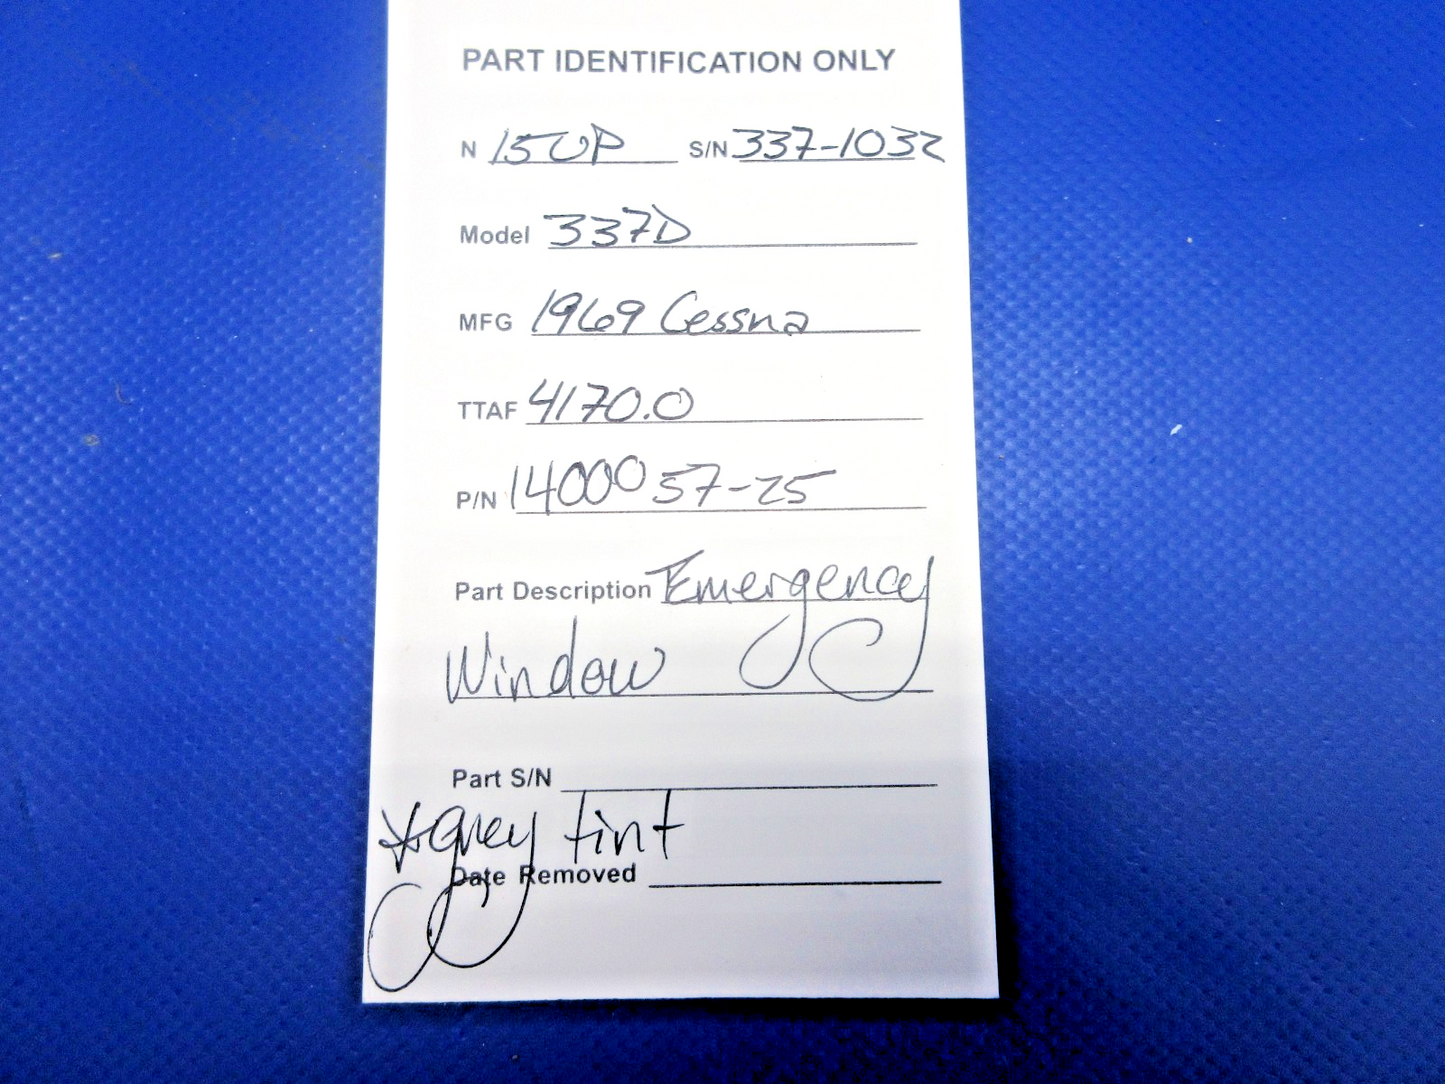 PART IDENTIFICATION ONLY
N 15UP S/N 337-1032
Model 337D
MFG 1969 Cessna
TTAF 4170.0
P/N 1400057-25
Part Description Emergency
Window
Part S/N
*grey tint
Date Removed